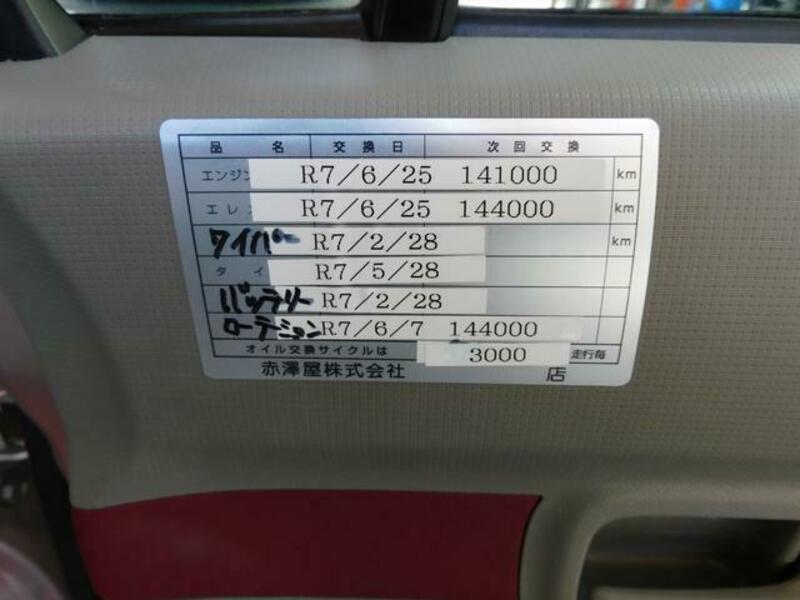 品名 交換日 次回交換
エンジン R7/6/25 141000 km
エレ R7/6/25 144000 km
ワイパー R7/2/28 km
タイ R7/5/28
バッテリー R7/2/28
ローテーション R7/6/7 144000
オイル交換サイクルは 3000 走行毎
赤澤屋株式会社 店